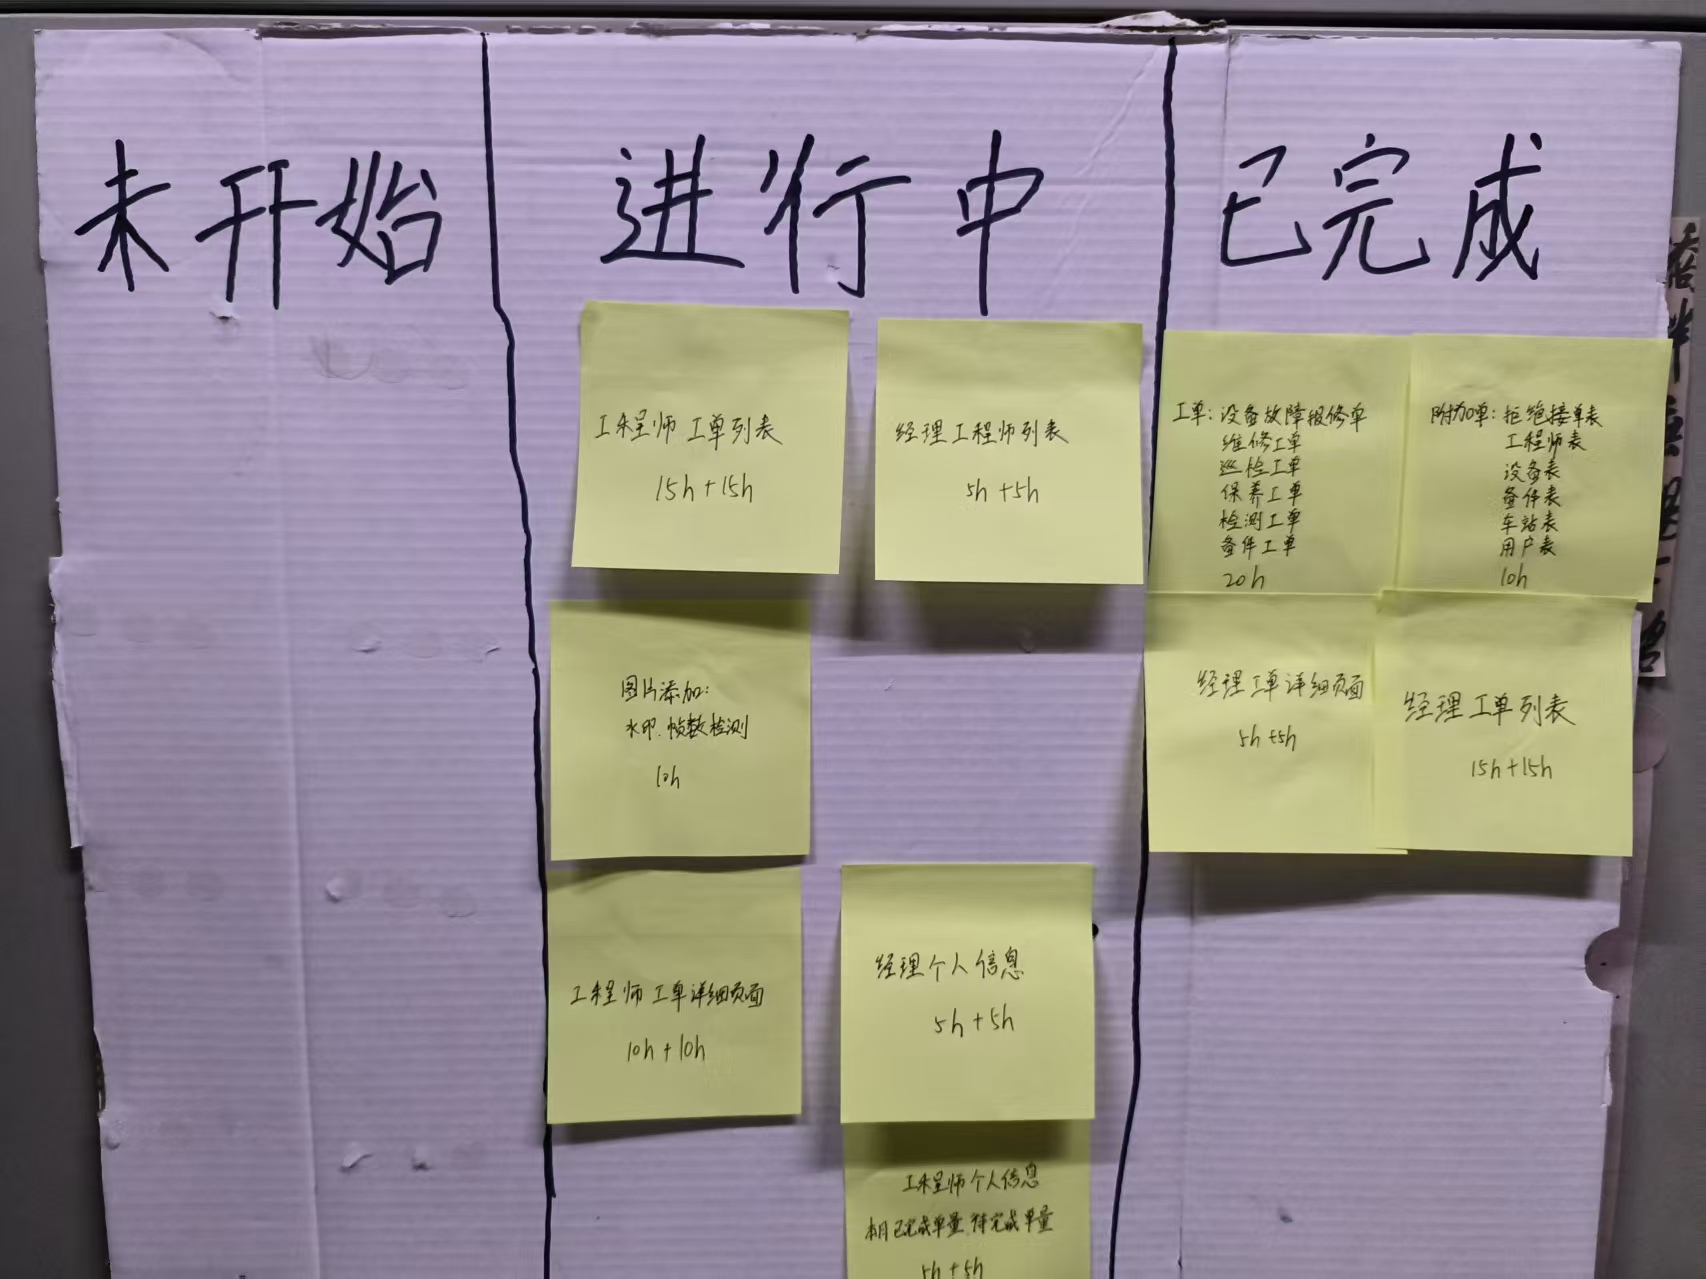 未开始
进行中
已完成
工程师工单列表
15h+15h
经理工程师列表
5h+5h
图片添加：
水印、帧数检测
10h
工程师工单详细页面
10h+10h
经理个人信息
5h+5h
工程师个人信息
本月已完成单量、待完成单量
5h+5h
工单：设备故障报修单
维修工单
巡检工单
保养工单
检测工单
备件工单
20h
附加单：拒绝接单表
工程师表
设备表
备件表
车站表
用户表
10h
经理工单详细页面
5h+5h
经理工单列表
15h+15h